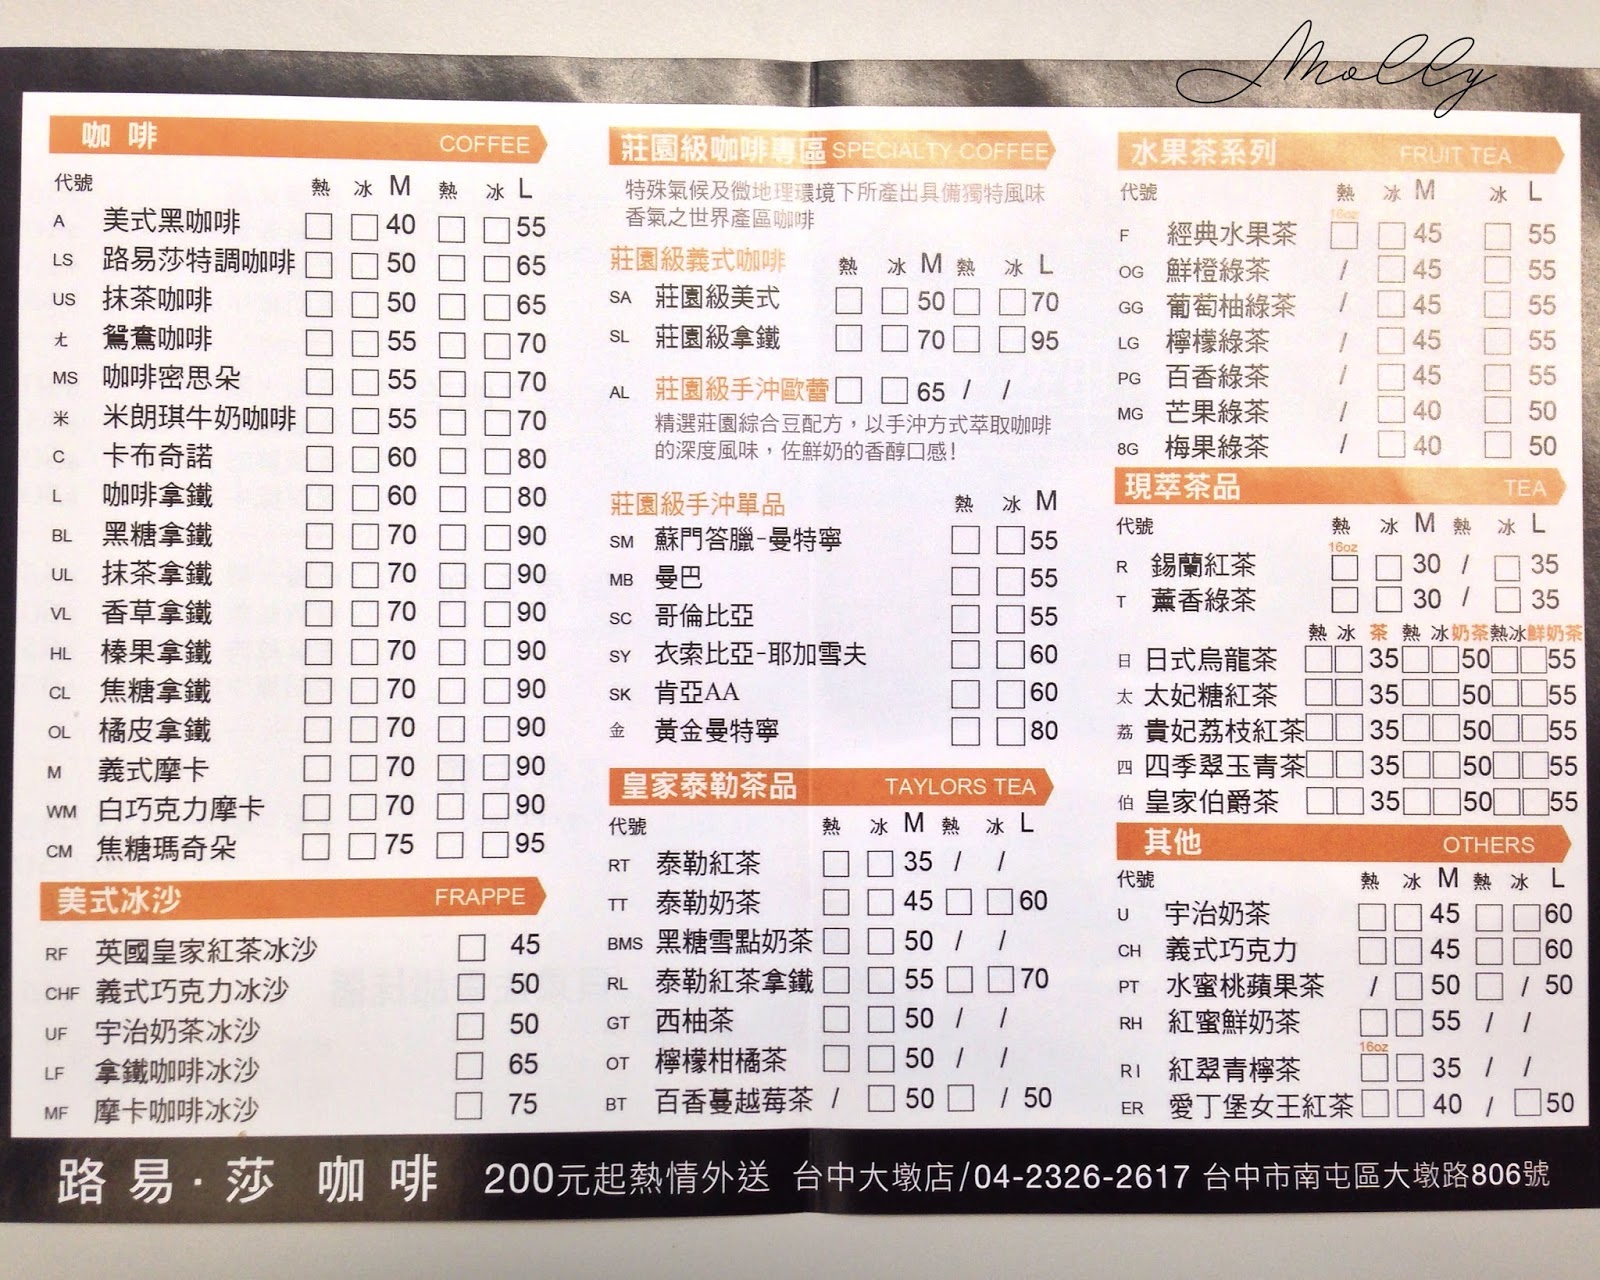 Molly
咖啡 COFFEE
代號 熱 冰 M 熱 冰 L
A 美式黑咖啡 40 55
LS 路易莎特調咖啡 50 65
US 抹茶咖啡 50 65
ㄤ 鴛鴦咖啡 55 70
MS 咖啡密思朵 55 70
米 米朗琪牛奶咖啡 55 70
C 卡布奇諾 60 80
L 咖啡拿鐵 60 80
BL 黑糖拿鐵 70 90
UL 抹茶拿鐵 70 90
VL 香草拿鐵 70 90
HL 榛果拿鐵 70 90
CL 焦糖拿鐵 70 90
OL 橘皮拿鐵 70 90
M 義式摩卡 70 90
WM 白巧克力摩卡 70 90
CM 焦糖瑪奇朵 75 95
美式冰沙 FRAPPE
RF 英國皇家紅茶冰沙 45
CHF 義式巧克力冰沙 50
UF 宇治奶茶冰沙 50
LF 拿鐵咖啡冰沙 65
MF 摩卡咖啡冰沙 75
莊園級咖啡專區 SPECIALTY COFFEE
特殊氣候及微地理環境下所產出具備獨特風味
香氣之世界產區咖啡
莊園級義式咖啡 熱 冰 M 熱 冰 L
SA 莊園級美式 50 70
SL 莊園級拿鐵 70 95
AL 莊園級手沖歐蕾 65 / /
精選莊園綜合豆配方，以手沖方式萃取咖啡
的深度風味，佐鮮奶的香醇口感!
莊園級手沖單品 熱 冰 M
SM 蘇門答臘-曼特寧 55
MB 曼巴 55
SC 哥倫比亞 55
SY 衣索比亞-耶加雪夫 60
SK 肯亞AA 60
金 黃金曼特寧 80
皇家泰勒茶品 TAYLORS TEA
代號 熱 冰 M 熱 冰 L
RT 泰勒紅茶 35 / /
TT 泰勒奶茶 45 60
BMS 黑糖雪點奶茶 50 / /
RL 泰勒紅茶拿鐵 55 70
GT 西柚茶 50 / /
OT 檸檬柑橘茶 50 / /
BT 百香蔓越莓茶 / 50 / 50
水果茶系列 FRUIT TEA
代號 熱 冰 M 冰 L
16oz
F 經典水果茶 45 55
OG 鮮橙綠茶 / 45 55
GG 葡萄柚綠茶 / 45 55
LG 檸檬綠茶 / 45 55
PG 百香綠茶 / 45 55
MG 芒果綠茶 / 40 50
8G 梅果綠茶 / 40 50
現萃茶品 TEA
代號 熱 冰 M 熱 冰 L
16oz
R 錫蘭紅茶 30 / 35
T 薰香綠茶 30 / 35
熱 冰 茶 熱 冰 奶茶 熱 冰 鮮奶茶
日 日式烏龍茶 35 50 55
太 太妃糖紅茶 35 50 55
荔 貴妃荔枝紅茶 35 50 55
四 四季翠玉青茶 35 50 55
伯 皇家伯爵茶 35 50 55
其他 OTHERS
代號 熱 冰 M 熱 冰 L
U 宇治奶茶 45 60
CH 義式巧克力 45 60
PT 水蜜桃蘋果茶 / 50 / 50
RH 紅蜜鮮奶茶 55 / /
16oz
RI 紅翠青檸茶 35 / /
ER 愛丁堡女王紅茶 40 / 50
路易·莎 咖啡 200元起熱情外送 台中大墩店/04-2326-2617 台中市南屯區大墩路806號